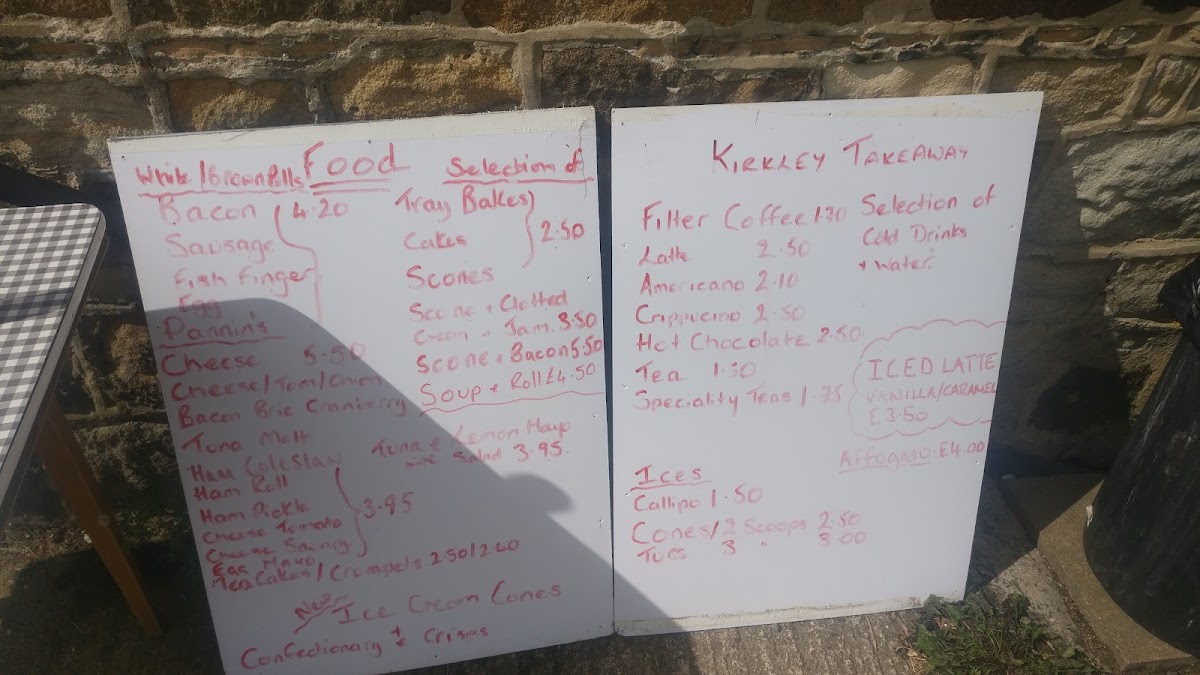 Food
White/Brown Rolls
Bacon 4.20
Sausage
Fish Finger
Egg
Pannin's
Cheese 5.50
Cheese/Tom/Onion
Bacon Brie Cranberry
Tuna Melt
Ham Coleslaw
Ham Roll
Ham Pickle
Cheese Tomato 3.95
Cheese Savoury
Egg Mayo
Tea Cakes/Crumpets 2.50/2.40
New Ice Cream Cones
Confectionary + Crisps
Selection of
Tray Bakes
Cakes 2.50
Scones
Scone + Clotted
Cream + Jam 3.50
Scone + Bacon 5.50
Soup + Roll £4.50
Tuna & Lemon Mayo
Salad 3.95
KIRKLEY TAKEAWAY
Filter Coffee 1.30
Latte 2.50
Americano 2.10
Cappucino 2.50
Hot Chocolate 2.50
Tea 1.30
Speciality Teas 1.75
Selection of
Cold Drinks
+ Water
ICED LATTE
VANILLA/CARAMEL
£3.50
Affogato £4.00
Ices
Callipo 1.50
Cones/2 Scoops 2.50
Tubs 3 " 3.00